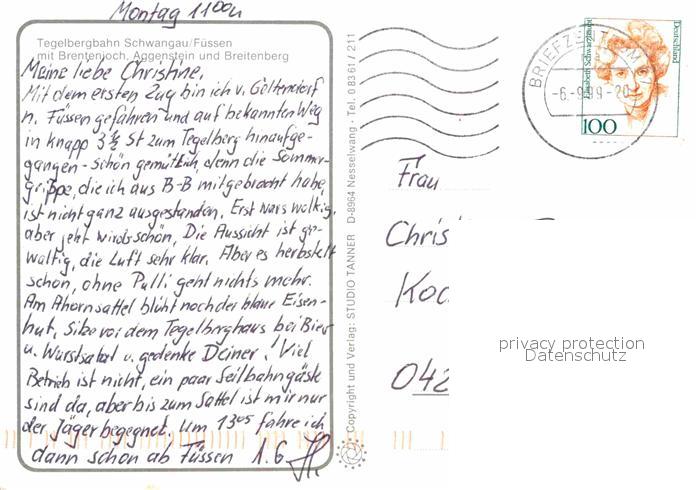 Montag 11⁰⁰h
Tegelbergbahn Schwangau/Füssen
mit Brentenjoch, Aggenstein und Breitenberg
Meine liebe Christine,
Mit dem ersten Zug bin ich v.
n. Füssen gefahren und auf bekanntem Weg
in knapp 3 ½ St zum Tegelberg hinaufge-
gangen - schön gemütlich, denn die Sommer-
grippe, die ich aus B-B mitgebracht habe,
ist nicht ganz ausgestanden. Erst wars wolkig,
aber jetzt wirds schön, Die Aussicht ist ge-
waltig, die Luft sehr klar. Aber es herbstelt
schon, ohne Pulli geht nichts mehr.
Am Ahornsattel blüht noch der blaue Eisen-
hut. Sitze vor dem Tegelberghaus bei Bier
u. Wurstsalat u. gedenke Deiner! Viel
Betrieb ist nicht, ein paar Seilbahngäste
sind da, aber bis zum Sattel ist mir nur
der Jäger begegnet. Um 13⁰⁵ fahre ich
dann schon ab Füssen
Copyright und Verlag: STUDIO TANNER D-8964 Nesselwang - Tel. 0 83 61 / 211
BRIEFZENTRUM
-6.-9.99-20
Deutschland
Elisabeth Schwarzhaupt
100
Frau
Chris
Koc
042
privacy protection
Datenschutz